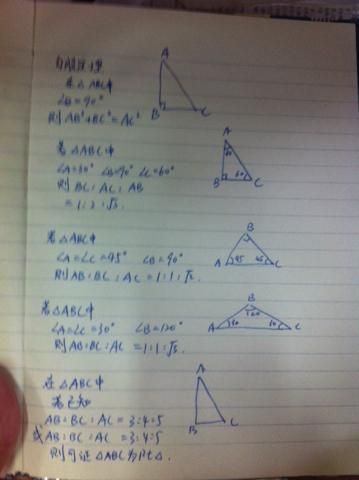 勾股定理
在△ABC中
∠B=90°
则 AB²+BC²=AC²
A
B
C
若△ABC中
∠A=30° ∠B=90° ∠C=60°
则 BC:AC:AB
=1:2:√3.
A
30
B
60
C
若△ABC中
∠A=∠C=45° ∠B=90°
则AB:BC:AC=1:1:√2.
B
A
45
45
C
若△ABC中
∠A=∠C=30° ∠B=120°
则AB:BC:AC=1:1:√3.
B
120
A
30
30
C
在△ABC中
若已知
AB:BC:AC=3:4:5
或AB:BC:AC=3:4:5
则可证△ABC为Rt△.
A
B
C